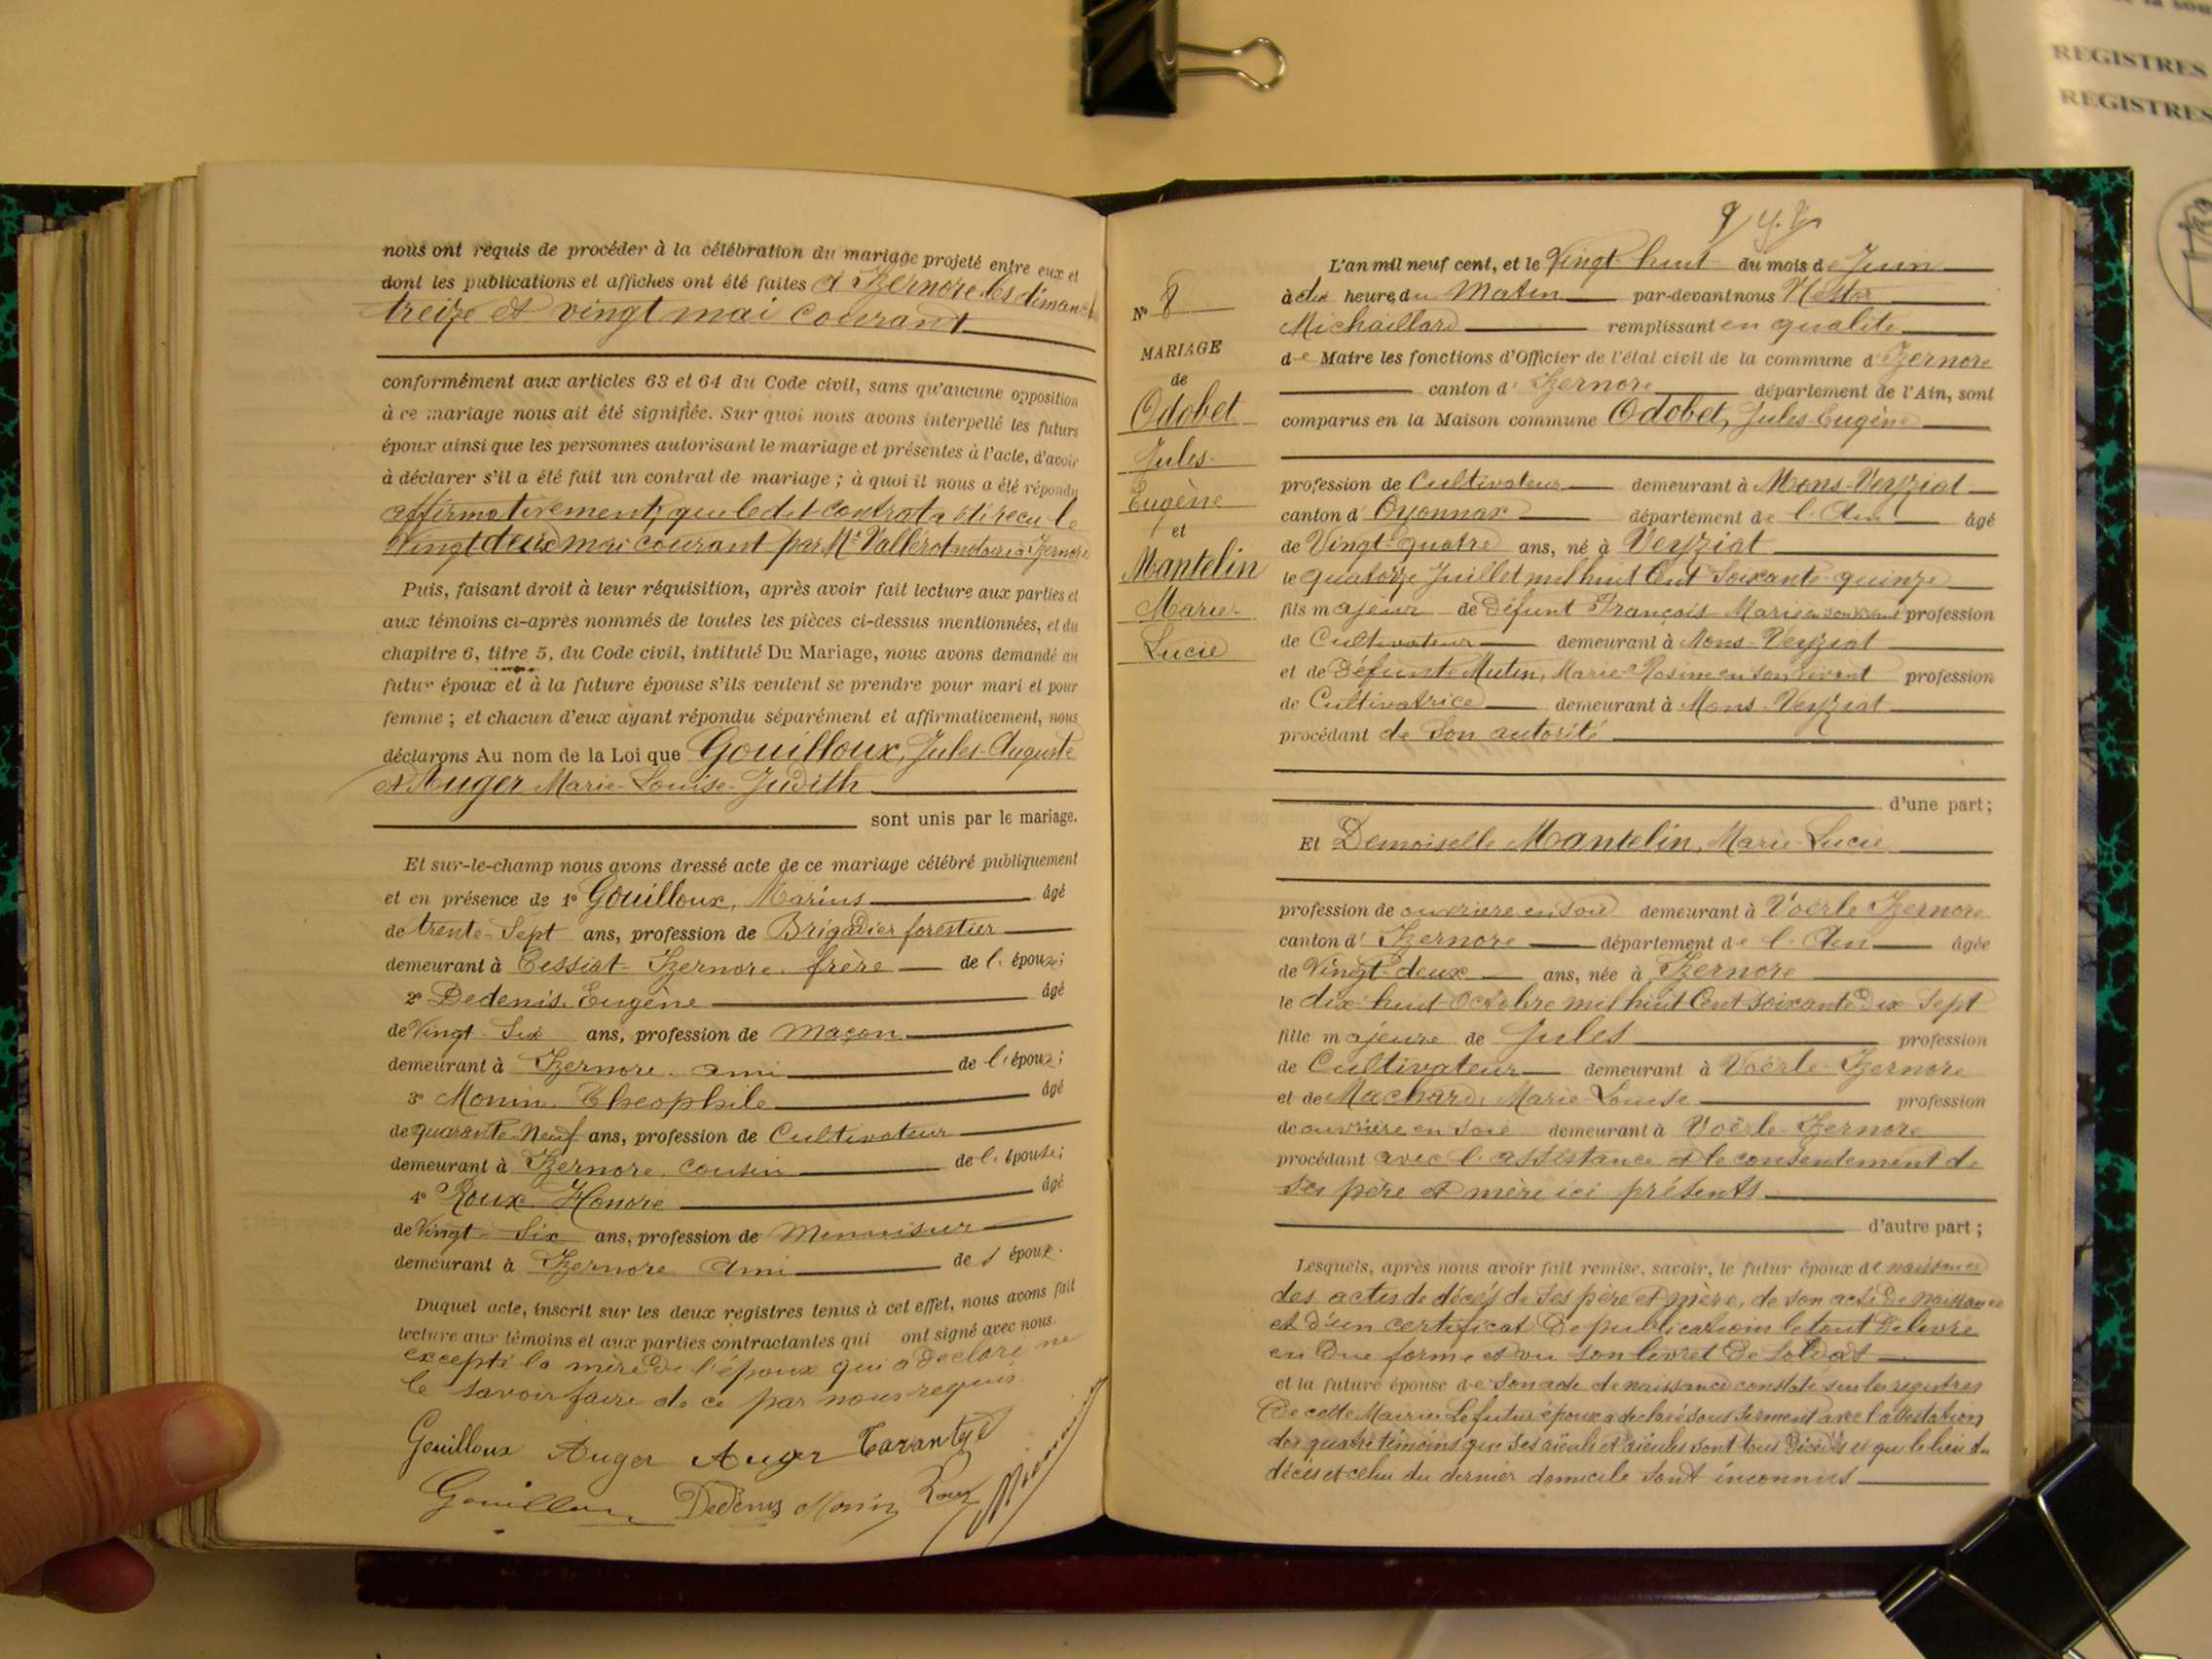 nous ont requis de procéder à la célébration du mariage projeté entre eux et
dont les publications et affiches ont été faites à Izernore les dimanch
treize et vingt mai courant
conformément aux articles 63 et 64 du Code civil, sans qu'aucune opposition
à ce mariage nous ait été signifiée. Sur quoi nous avons interpellé les futurs
époux ainsi que les personnes autorisant le mariage et présentes à l'acte, d'avoir
à déclarer s'il a été fait un contrat de mariage ; à quoi il nous a été répondu
affirmativement, que ledit contrat a été reçu le
Vingt deux mai courant par Me Vallerot notaire à Izernore
Puis, faisant droit à leur réquisition, après avoir fait lecture aux parties et
aux témoins ci-après nommés de toutes les pièces ci-dessus mentionnées, et du
chapitre 6, titre 5, du Code civil, intitulé Du Mariage, nous avons demandé au
futur époux et à la future épouse s'ils veulent se prendre pour mari et pour
femme ; et chacun d'eux ayant répondu séparément et affirmativement, nous
déclarons Au nom de la Loi que Gouilloux, Jules-Auguste
et Auger Marie-Louise-Judith
sont unis par le mariage.
Et sur-le-champ nous avons dressé acte de ce mariage célébré publiquement
et en présence de 1° Gouilloux, Marius âgé
de trente-Sept ans, profession de Brigadier forestier
demeurant à Cessiat-Izernore, frère de l'époux;
2° Dedenis Eugène âgé
de Vingt-Six ans, profession de Maçon
demeurant à Izernore, ami de l'époux;
3° Monin Théophile âgé
de quarante-Neuf ans, profession de Cultivateur
demeurant à Izernore, cousin de l'épouse;
4° Roux Honoré âgé
de Vingt-Six ans, profession de Menuisier
demeurant à Izernore Ami de l'époux.
Duquel acte, inscrit sur les deux registres tenus à cet effet, nous avons fait
lecture aux témoins et aux parties contractantes qui ont signé avec nous
excepté la mère de l'époux qui a déclaré ne
le savoir faire de ce par nous requis.
Gouilloux Auger Auger Tarantyé
Gouilloux Dedenis Monin Roux
9
N° 8
MARIAGE
de
Odobet
Jules-
Eugène
et
Mantelin
Marie-
Lucie
L'an mil neuf cent, et le Vingt-huit du mois de Juin
à dix heure du Matin par-devant nous Nestor
Michaillard remplissant en qualité
de Maire les fonctions d'Officier de l'état civil de la commune d'Izernore
canton d'Izernore département de l'Ain, sont
comparus en la Maison commune Odobet, Jules-Eugène
profession de Cultivateur demeurant à Mons-Veyziat
canton d'Oyonnax département de l'Ain âgé
de Vingt-quatre ans, né à Veyziat
le quatorze Juillet mil huit Cent Soixante-quinze
fils majeur de Défunt François Marie en son vivant profession
de Cultivateur demeurant à Mons-Veyziat
et de Défunte Mutin, Marie-Rosine en son vivant profession
de Cultivatrice demeurant à Mons-Veyziat
procédant de Son autorité
d'une part;
Et Demoiselle Mantelin, Marie-Lucie
profession de ouvrière en soie demeurant à Voërle Izernore
canton d'Izernore département de l'Ain âgée
de Vingt-deux ans, née à Izernore
le dix huit Octobre mil huit Cent soixante Dix Sept
fille majeure de Jules profession
de Cultivateur demeurant à Voërle-Izernore
et de Machard, Marie-Louise profession
de ouvrière en soie demeurant à Voërle-Izernore
procédant avec l'assistance et le consentement de
ses père et mère ici présents
d'autre part ;
Lesquels, après nous avoir fait remise, savoir, le futur époux de naissance
des actes de décés de ses père et mère, de son acte De naissance
et d'un certificat De publication le tout Délivré
en Due forme et vu son livret De Soldat
et la future épouse de Son acte de naissance constaté sur les registres
De cette Mairie. Le futur époux a déclaré sous serment avec l'attestation
des quatre témoins que ses aïeuls et aïeules sont tous Décédés et que le lieu du
décès et celui du dernier domicile sont inconnus
REGISTRES
REGISTRES